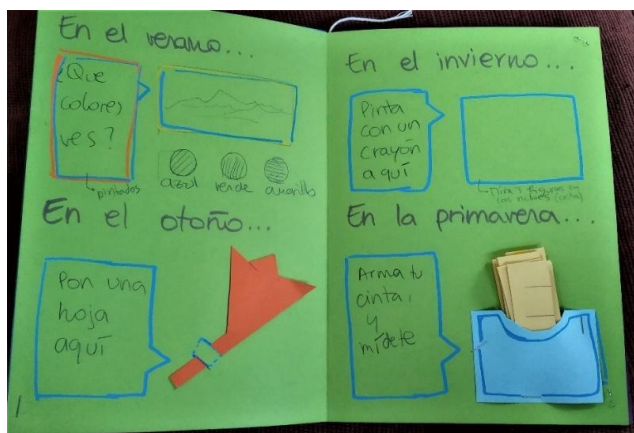 En el verano...
¿Que
colores
ves?
pintados
azul verde amarillo
En el otoño...
Pon una
hoja
aquí
1
En el invierno...
Pinta
con un
crayón
aquí
En la primavera...
Arma tu
cinta,
y
mídete